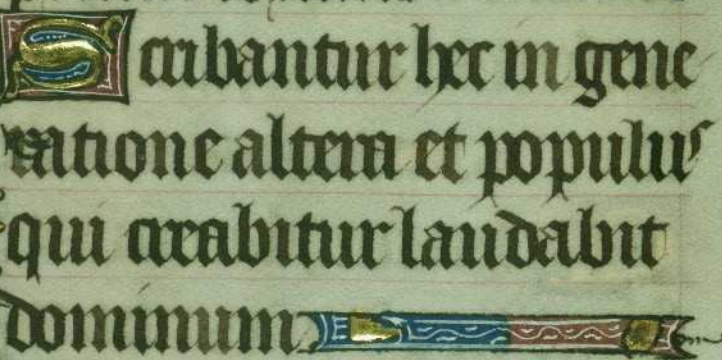 Scribantur hec in gene
ratione altera et populus
qui creabitur laudabit
dominum